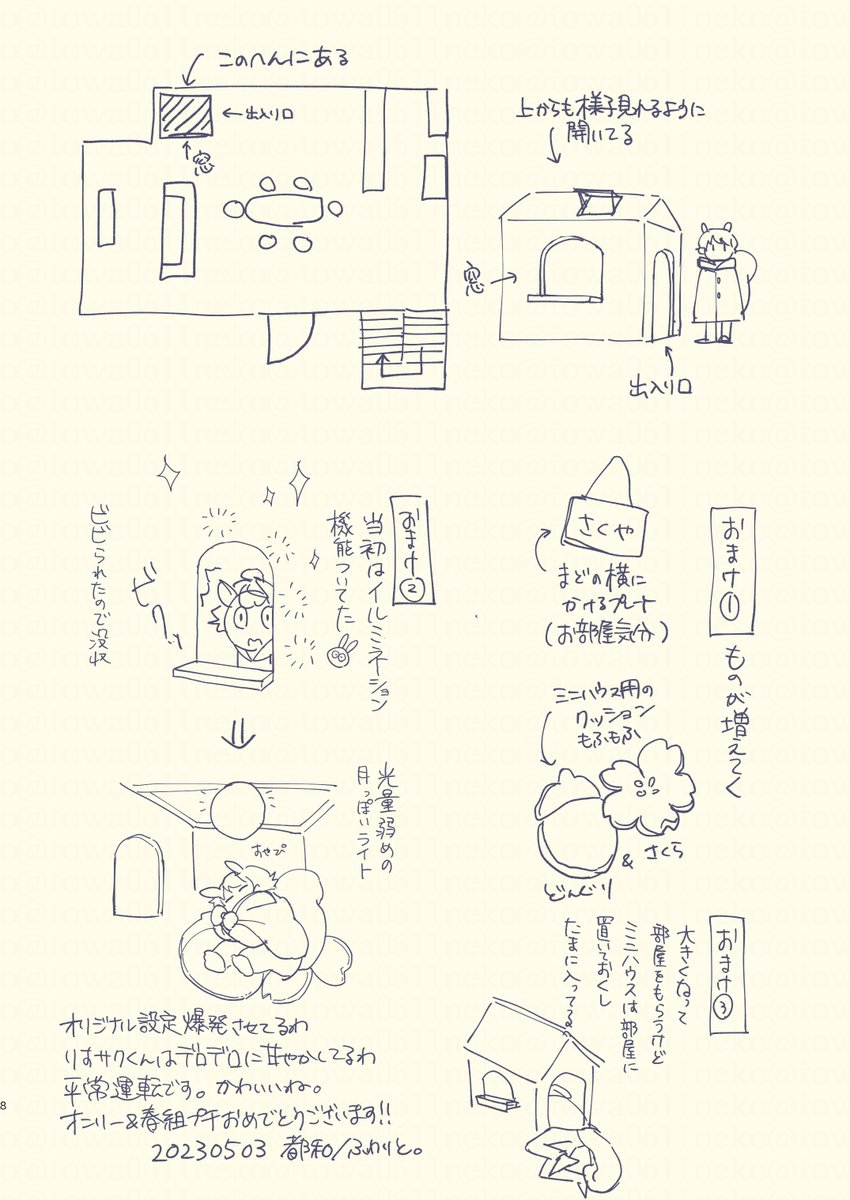 このへんにある
←出入り口
窓
上からも様子見れるように
開いてる
窓
出入り口
おまけ①
ものが増えてく
さくや
まどの横に
かけるプレート
(お部屋気分)
ミニハウス用の
クッション
もふもふ
どんぐり
&
さくら
おまけ②
当初はイルミネーション
機能ついてた
ビクッ
ビビられたので没収
光量弱めの
月っぽいライト
おやぴ
おまけ③
大きくなって
部屋をもらうけど
ミニハウスは部屋に
置いておくし
たまに入ってる。
オリジナル設定爆発させてるわ
りすサクくんはデロデロに甘やかしてるわ
平常運転です。かわいいね。
オンリー&春組プチおめでとうございます!!
20230503 都和/ふかりと。
8
o@towa0611neko@towa0611neko@tow